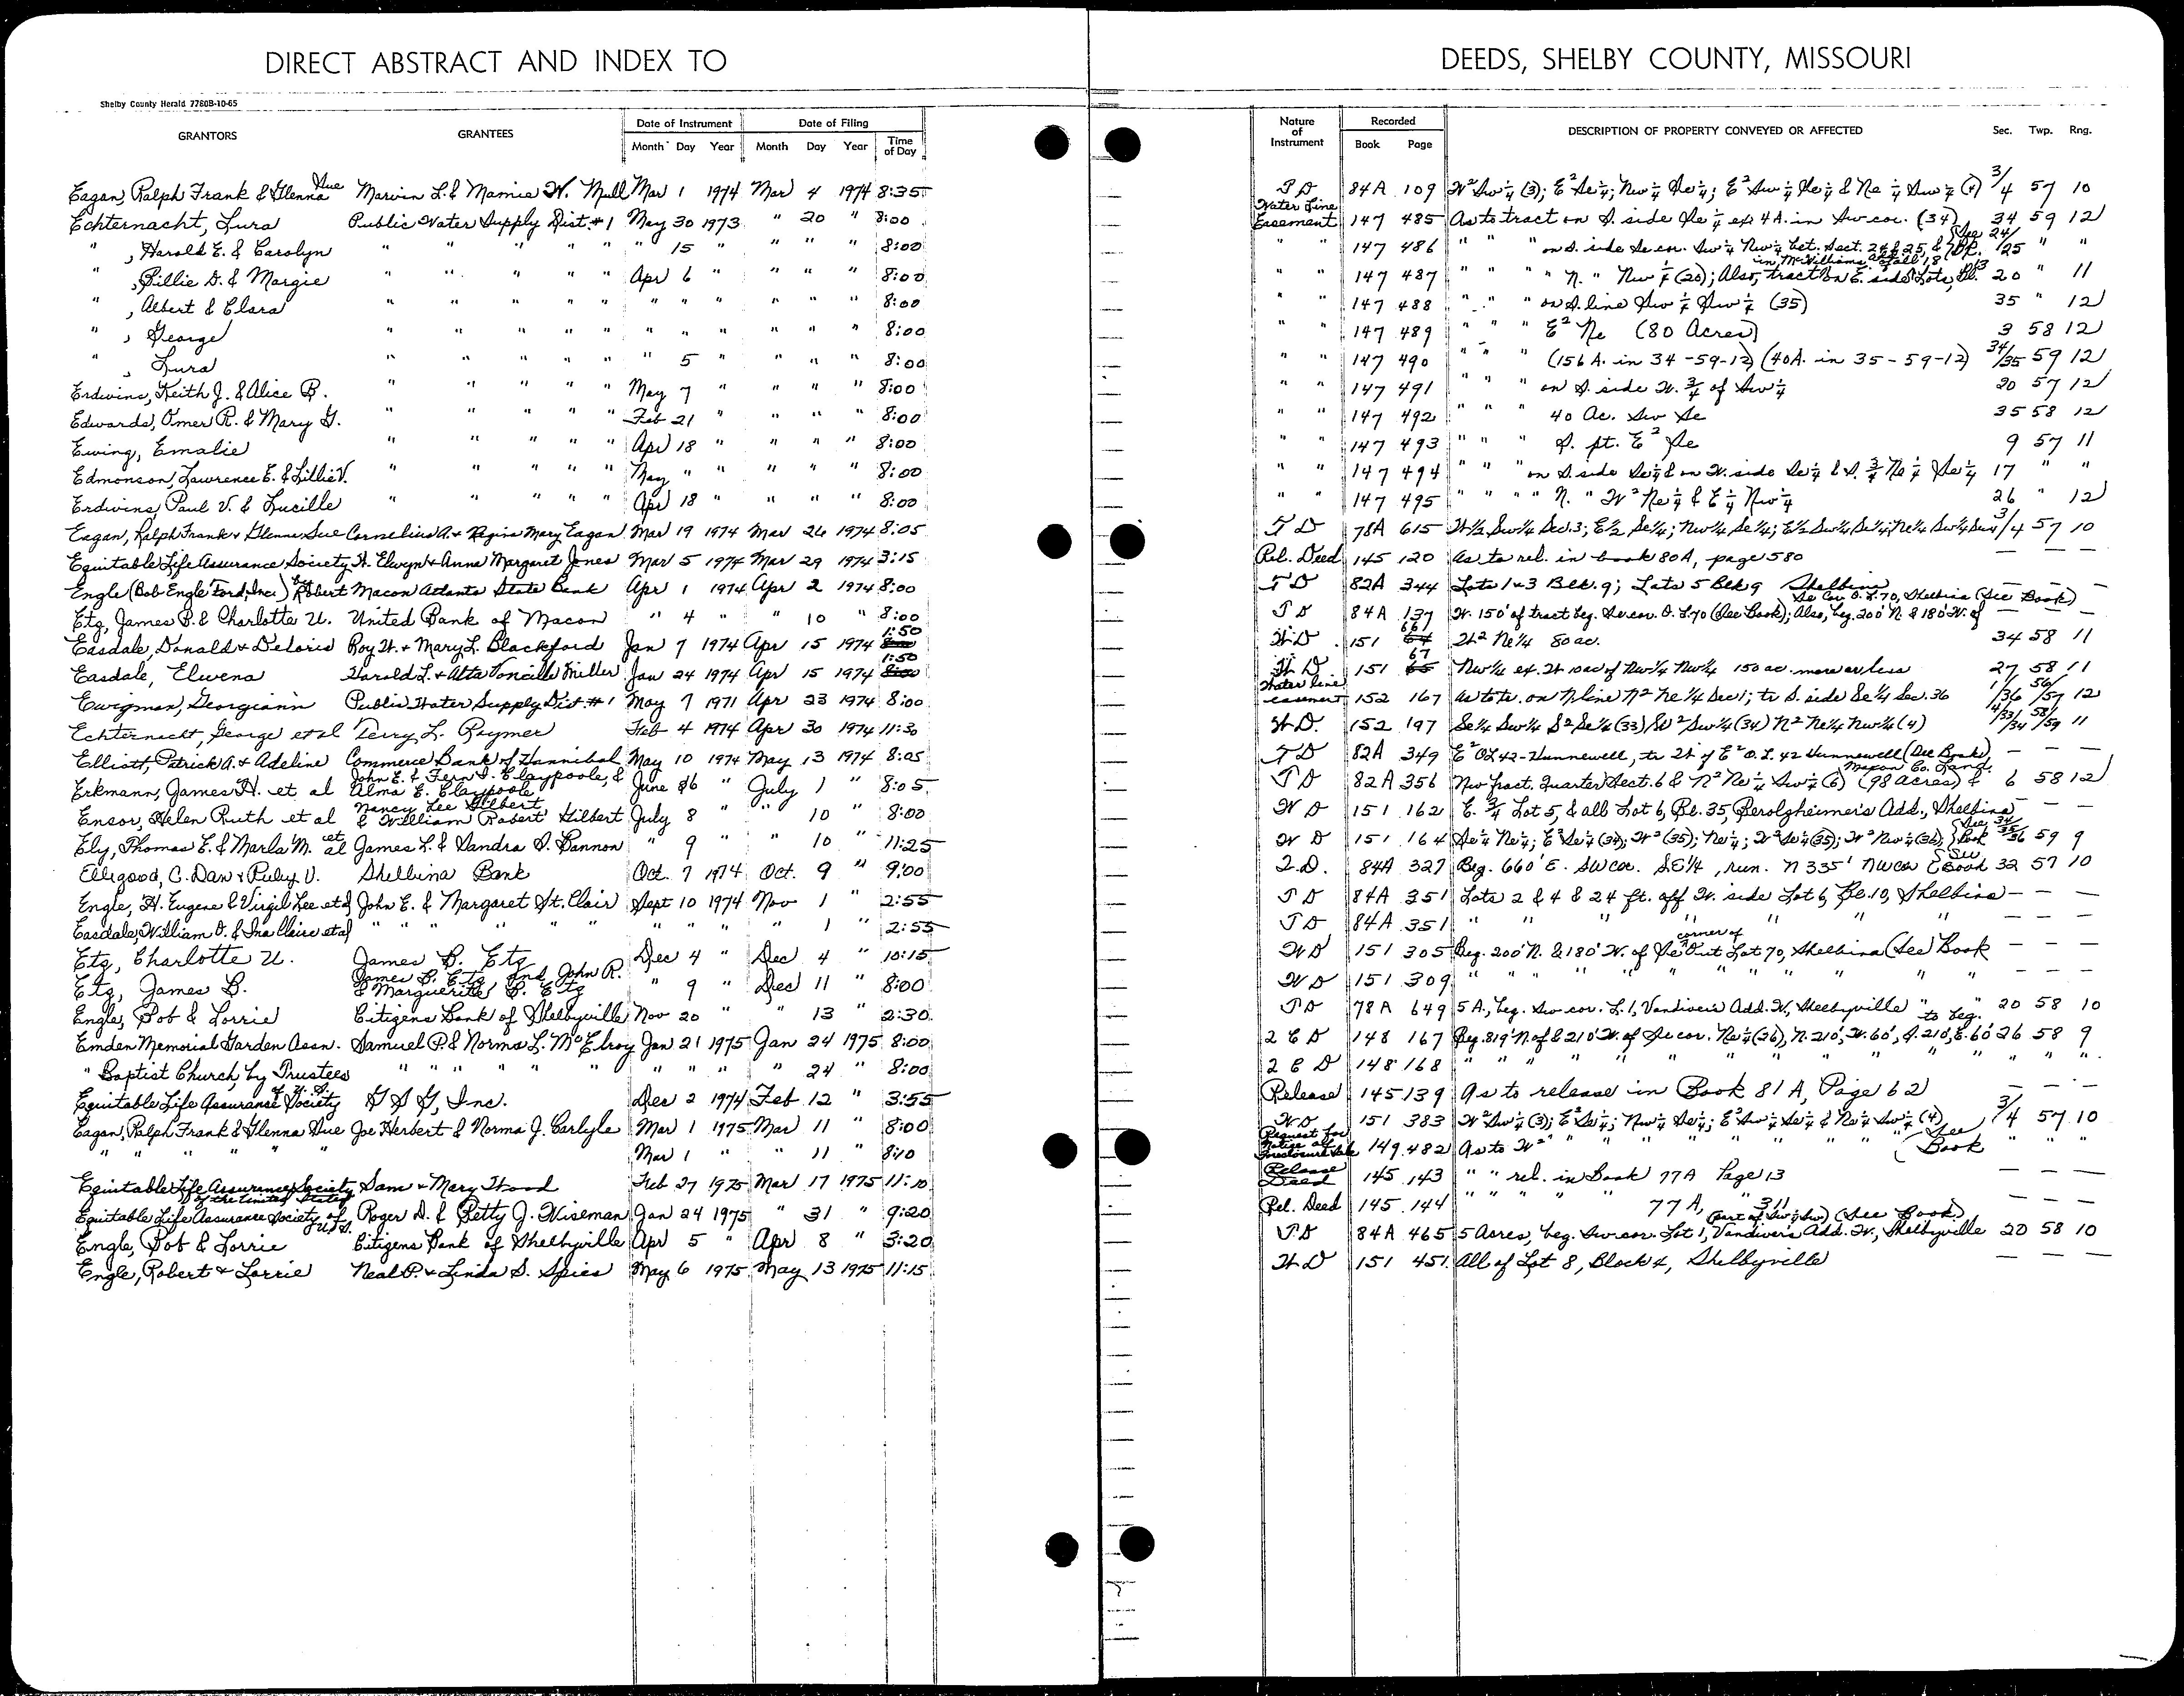 DIRECT ABSTRACT AND INDEX TO DEEDS, SHELBY COUNTY, MISSOURI
Shelby County Herald 7780B-10-65
GRANTORS GRANTEES Date of Instrument Month Day Year Date of Filing Month Day Year Time of Day Nature of Instrument Recorded Book Page DESCRIPTION OF PROPERTY CONVEYED OR AFFECTED Sec. Twp. Rng.
Eagan, Ralph Frank & Glenna Sue Marvin L. & Mamie W. Mull Mar 1 1974 Mar 4 1974 8:35 T D 84A 109 W² Sw ¼ (3); E² Se ¼; Nw ¼ Se ¼; E² Sw ¼ Se ¼ & Ne ¼ Sw ¼ (4) 3/4 57 10
Echternacht, Lura Public Water Supply Dist. #1 May 30 1973 " 20 " 8:00 Water Line Easement 147 485 As to tract on S. side Se ¼ ex 4A. in Sw cor. (34) 34 59 12
" , Harold E. & Carolyn " " " " " 15 " " " " 8:00 " " 147 486 " " " on S. side Se cor. Sw ¼ Nw ¼ bet. Sect. 24 & 25, & See 24/25 " "
" , Billie D. & Margie " " " " " Apr 6 " " " " 8:00 " " 147 487 " " " " N. " Nw ¼ (20); Also, tract on E. side Lots, 20 " 11
" , Albert & Clara " " " " " " " " " " " 8:00 " " 147 488 " " " on S. line Sw ¼ Sw ¼ (35) 35 " 12
" , George " " " " " " " " " " " 8:00 " " 147 489 " " " E² Ne (80 Acres) 3 58 12
" , Lura " " " " " " 5 " " " " 8:00 " " 147 490 " " " (156 A. in 34-59-12) (40A. in 35-59-12) 34/35 59 12
Erdwins, Keith J. & Alice B. " " " " " May 7 " " " " 8:00 " " 147 491 " " " on S. side W. ¾ of Sw ¼ 20 57 12
Edwards, Omer R. & Mary G. " " " " " Feb 21 " " " " 8:00 " " 147 492 " " " 40 Ac. Sw Se 35 58 12
Ewing, Emalie " " " " " Apr 18 " " " " 8:00 " " 147 493 " " " S. pt. E² Se 9 57 11
Edmonson, Lawrence E. & Lillie V. " " " " " May " " " " " 8:00 " " 147 494 " " " on S. side Se ¼ & on W. side Se ¼ & S. ¾ Ne ¼ Se ¼ 17 " "
Erdwins, Paul V. & Lucille " " " " " Apr 18 " " " " 8:00 " " 147 495 " " " " N. " W² Ne ¼ & E ¼ Nw ¼ 26 " 12
Eagan, Ralph Frank & Glenna Sue Cornelius A. & Regina Mary Eagan Mar 19 1974 Mar 26 1974 8:05 T D 78A 615 W ½ Sw ¼ Sec. 3; E ½ Se ¼; Nw ¼ Se ¼; E ½ Sw ¼ Se ¼; Ne ¼ Sw ¼ Sec 3/4 57 10
Equitable Life Assurance Society H. Elwyn & Anna Margaret Jones Mar 5 1974 Mar 29 1974 3:15 Rel. Deed 145 120 As to rel. in book 80A, page 580 — — —
Engle (Bob Engle Ford, Inc.) by Robert Macon Atlanta State Bank Apr 1 1974 Apr 2 1974 8:00 T D 82A 344 Lots 1 & 3 Blk. 9; Lots 5 Blk 9 Shelbina — —
Etz, James B. & Charlotte U. United Bank of Macon " 4 " " 10 " 8:00 T D 84A 137 W. 150' of tract beg. Se cor. O. L. 70 (See Book); Also, beg. 200' N. & 180' W. of Se Cor O. L. 70, Shelbina (See Book) — — —
Easdale, Donald & Deloris Roy W. & Mary L. Blackford Jan 7 1974 Apr 15 1974 1:50 W D 151 66 W² Ne ¼ 80 ac. 34 58 11
Easdale, Elwena Harold L. & Alta Voncille Miller Jan 24 1974 Apr 15 1974 1:50 W D 151 67 Nw ¼ ex. W 10 ac of Nw ¼ Nw ¼ 150 ac. more or less 27 58 11
Ewigman, Georgiann Public Water Supply Dist. #1 May 7 1971 Apr 23 1974 8:00 Water line easement 152 167 As to tr. on N line N² Ne ¼ Sec 1; tr S. side Se ¼ Sec. 36 1/36 56/57 12
Echternacht, George et al Terry L. Rhymer Feb 4 1974 Apr 30 1974 11:30 W. D. 152 197 Se ¼ Sw ¼ S² Se ¼ (33) S² Sw ¼ (34) N² Ne ¼ Nw ¼ (4) 4/33/34 58/59 11
Elliott, Patrick A. & Adeline Commerce Bank of Hannibal May 10 1974 May 13 1974 8:05 T D 82A 349 E² OL 42-Hunnewell, tr W. of E² O. L. 42 Hunnewell (See Book) — — —
Erkmann, James H. et al John E. & Fern I. Claypoole, & Alma E. Claypoole June 6 " July 1 " 8:05 T D 82A 356 Nw fract. Quarter Sect. 6 & N² Ne ¼ Sw ¼ (6) (98 Acres) & Macon Co. Land. 6 58 12
Ensor, Helen Ruth et al Nancy Lee Hilbert & William Robert Hilbert July 8 " " 10 " 8:00 W D 151 162 E. ¾ Lot 5, & all Lot 6, Bl. 35, Berolzheimer's Add., Shelbina — —
Ely, Thomas E. & Marla M. et al James L. & Sandra S. Bannon " 9 " " 10 " 11:25 W D 151 164 Se ¼ Ne ¼; E² Se ¼ (34); W² (35); Ne ¼; W² Se ¼ (35); W² Nw ¼ (36) See Book 34/35/36 59 9
Elligood, C. Dan & Ruby V. Shelbina Bank Oct. 7 1974 Oct. 9 " 9:00 T. D. 84A 327 Beg. 660' E. SW cor. SE ¼, run. N 335' NW cor (See Book 32 57 10
Engle, H. Eugene & Virgil Lee et al John E. & Margaret St. Clair Sept 10 1974 Nov 1 " 2:55 T D 84A 351 Lots 2 & 4 & 24 ft. off W. side Lot 6, Bl. 10, Shelbina — — —
Easdale, William O. & Ina Claire et al " " " " " " " " 1 " 2:55 T D 84A 351 " " " " " " — — —
Etz, Charlotte U. James B. Etz Dec 4 " Dec 4 " 10:15 W D 151 305 Beg. 200' N. & 180' W. of Se corner of Out Lot 70, Shelbina (See) Book — — —
Etz, James B. James B. Etz and John R. & Marguerite B. Etz " 9 " Dec 11 " 8:00 W D 151 309 " " " " " " " " " " " — — —
Engle, Bob & Lorrie Citizens Bank of Shelbyville Nov 20 " " 13 " 2:30 T D 78A 649 5 A., beg. Sw cor. L. 1, Vandiver's Add. W., Shelbyville " " 20 58 10
Emden Memorial Garden Assn. Samuel P. & Norma L. McElroy Jan 21 1975 Jan 24 1975 8:00 2 C D 148 167 Beg. 819' N. of & 210' W. of Se cor. Ne ¼ (26), N. 210', W. 60', S. 210', E. 60' to beg. 26 58 9
" Baptist Church, by Trustees " " " " " " " " " 24 " 8:00 2 C D 148 168 " " " " " " " " " " "
Equitable Life Assurance Society of U. S. G S G, Inc. Dec 2 1974 Feb 12 " 3:55 Release 145 139 As to release in Book 81 A, Page 62 — — —
Eagan, Ralph Frank & Glenna Sue Joe Herbert & Norma J. Carlyle Mar 1 1975 Mar 11 " 8:00 W D 151 383 W² Sw ¼ (3); E² Se ¼; Nw ¼ Se ¼; E² Sw ¼ Se ¼ & Ne ¼ Sw ¼ (4) 3/4 57 10
" " " " " " Mar 1 " " 11 " 8:10 Request for Notice of Foreclosure Sale 149 482 As to W² " " " " " " " " (See Book " " "
Equitable Life Assurance Society of the United States Sam & Mary Wood Feb 27 1975 Mar 17 1975 11:10 Release Deed 145 143 " " rel. in Book 77A Page 13 — — —
Equitable Life Assurance Society of U.S. Roger D. & Betty J. Wiseman Jan 24 1975 " 31 " 9:20 Rel. Deed 145 144 " " " " " 77 A, " 311 — — —
Engle, Bob & Lorrie Citizens Bank of Shelbyville Apr 5 " Apr 8 " 3:20 T D 84A 465 5 Acres, beg. Sw cor. Lot 1, Vandiver's Add. W., Shelbyville (part of Sw ¼ Sw) (See Book) 20 58 10
Engle, Robert & Lorrie Neal P. & Linda S. Spies May 6 1975 May 13 1975 11:15 W D 151 451 All of Lot 8, Block 4, Shelbyville — — —